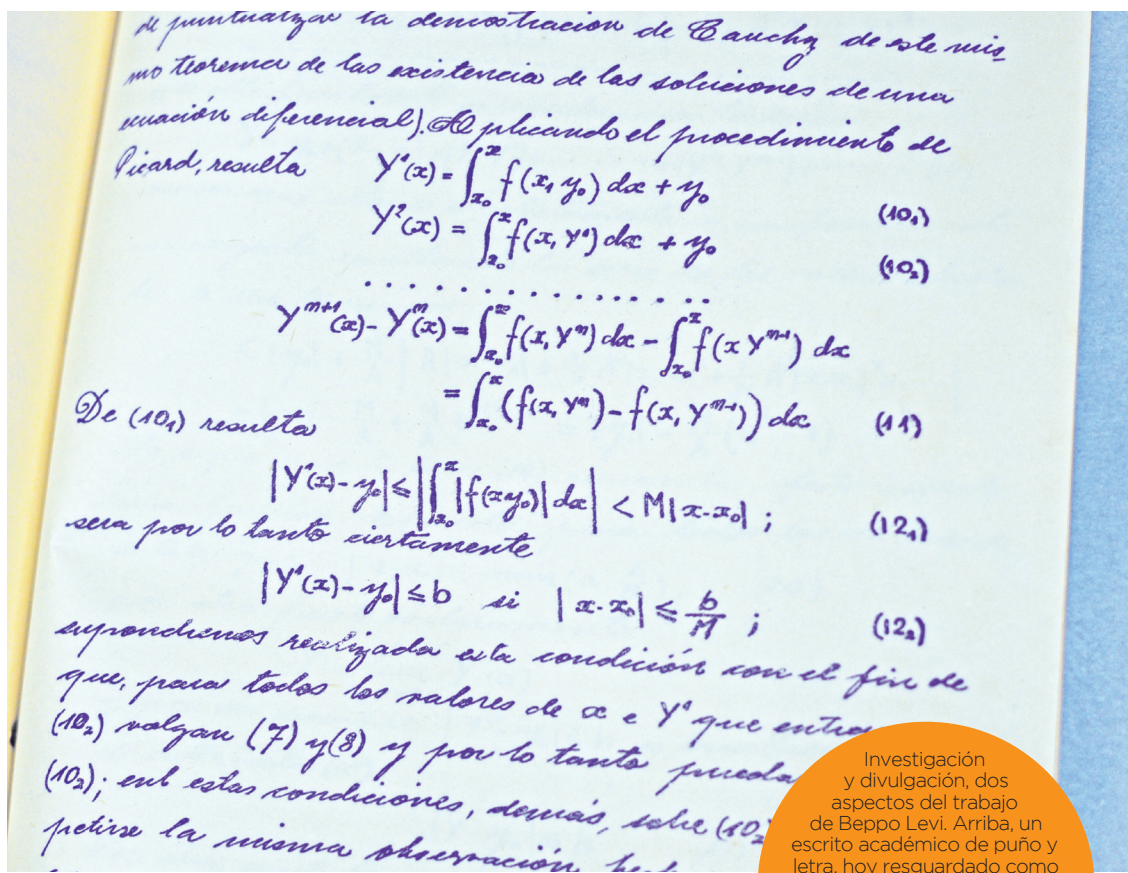 de puntualizar la demostración de Cauchy de este mis-
mo teorema de las existencia de las soluciones de una
ecuación diferencial). Aplicando el procedimiento de
Picard, resulta Y¹(x) = ∫ₓ₀ˣ f(x, y₀) dx + y₀ (10₁)
Y²(x) = ∫ₓ₀ˣ f(x, Y¹) dx + y₀ (10₂)
. . . . . . . . . . . . . . . .
Yᵐ⁺¹(x) - Yᵐ(x) = ∫ₓ₀ˣ f(x, Yᵐ) dx - ∫ₓ₀ˣ f(x Yᵐ⁻¹) dx
= ∫ₓ₀ˣ (f(x, Yᵐ) - f(x, Yᵐ⁻¹)) dx (11)
De (10₁) resulta
|Y¹(x) - y₀| ≤ |∫ₓ₀ˣ |f(x y₀)| dx| < M|x-x₀| ; (12₁)
sera por lo tanto ciertamente
|Y¹(x) - y₀| ≤ b si |x-x₀| ≤ b/M ; (12₂)
supondremos realizada esta condición con el fin de
que, para todos los valores de x e Y¹ que
(10₂) valgan (7) y (8) y por lo tanto pueda
(10₂); en estas condiciones, demás, sobre (10₂)
petirse la misma observación
Investigación
y divulgación, dos
aspectos del trabajo
de Beppo Levi. Arriba, un
escrito académico de puño y
letra, hoy resguardado como